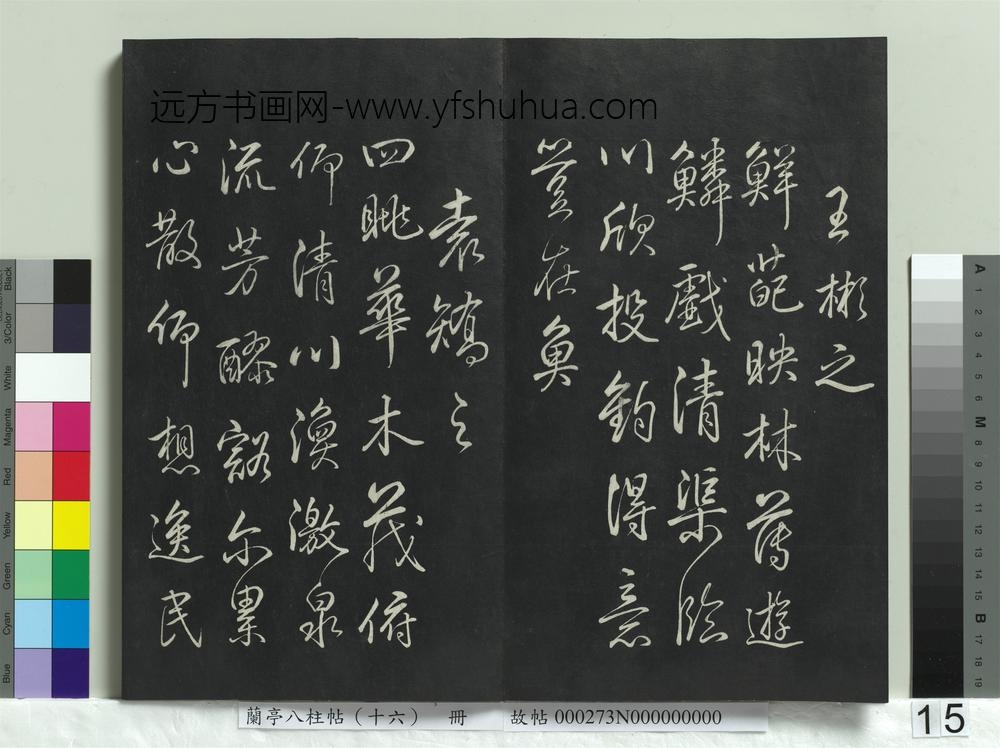 远方书画网-www.yfshuhua.com
王彬之
鮮葩映林薄遊
鱗戲清渠臨
川欣投釣得意
豈在魚
袁矯之
四眺華木茂俯
仰清川渙激泉
流芳醪豁尔累
心散仰想逸民
蘭亭八柱帖（十六） 冊 故帖 000273N000000000
15
Black
3/Color
White
Magenta
Red
Yellow
Green
Cyan
Blue
A 1 2 3 4 5 6 M 8 9 10 11 12 13 14 15 B 17 18 19